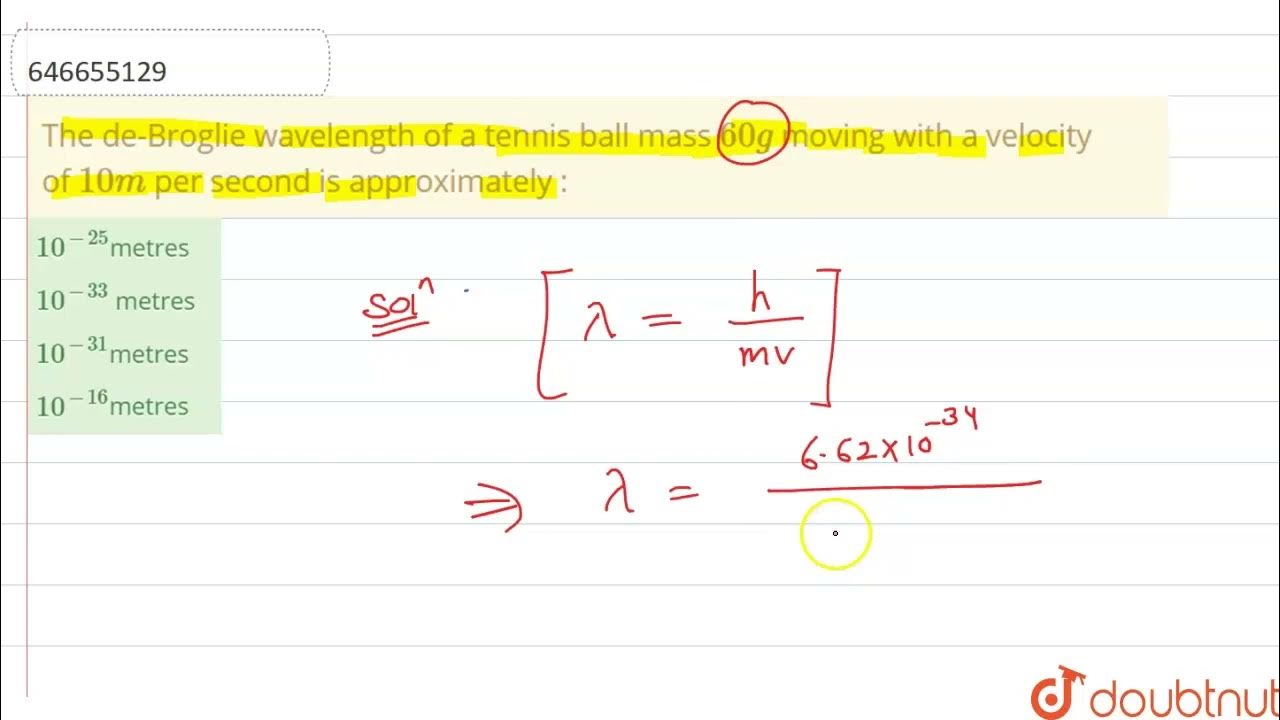 646655129
The de-Broglie wavelength of a tennis ball mass 60g moving with a velocity
of 10m per second is approximately :
10^{-25}metres
10^{-33} metres
10^{-31}metres
10^{-16}metres
Sol^n
[λ = h/mv]
⇒ λ = 6.62×10^{-34}
doubtnut